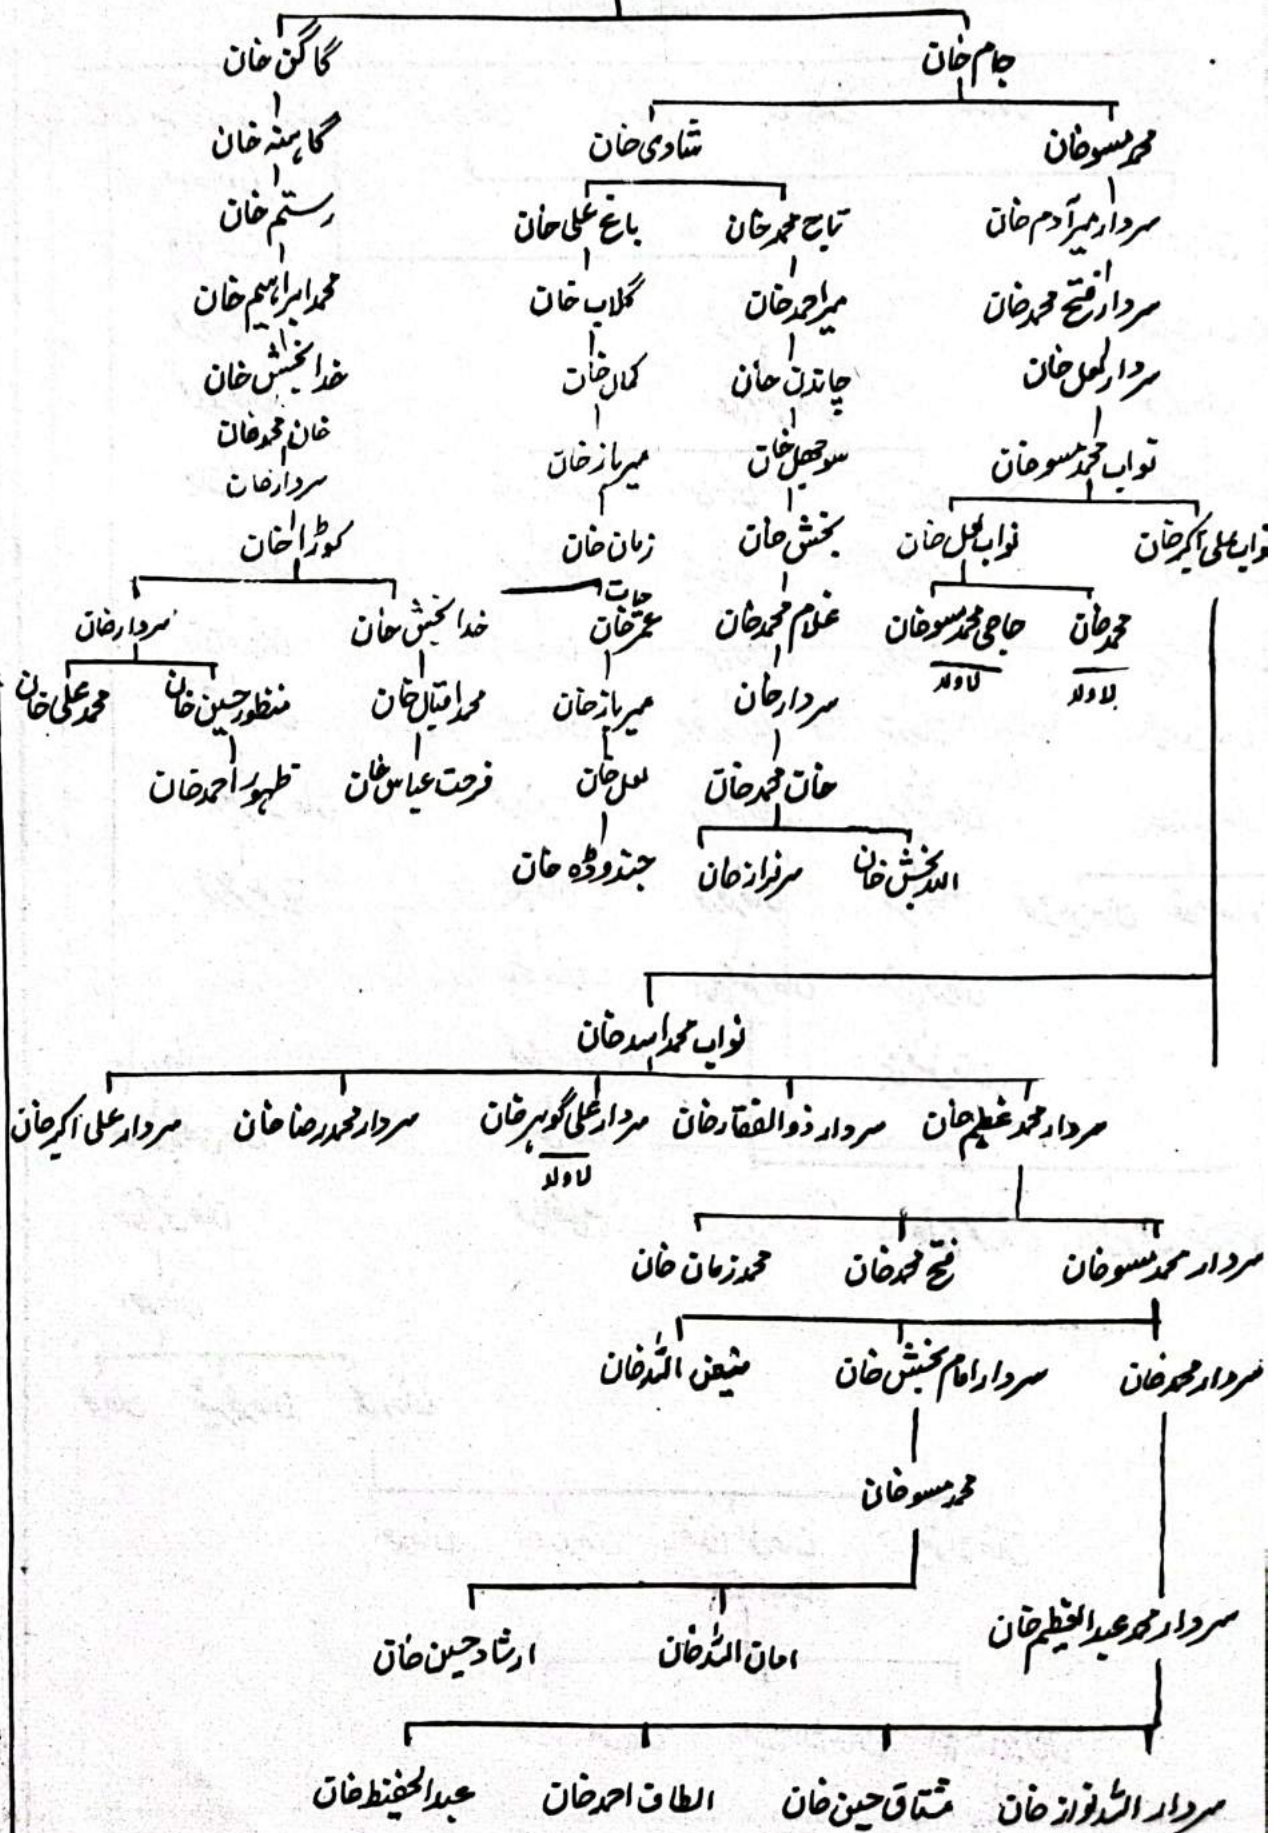 جام خان گاگن خان
محمد مسو خان شادی خان گاہنہ خان
سردار میر آدم خان تاج محمد خان باغ علی خان رستم خان
سردار فتح محمد خان میر احمد خان گلاب خان محمد ابراہیم خان
سردار لعل خان چاندن خان کمال خان خدا بخش خان
نواب محمد مسو خان سوجھل خان میر باز خان خان محمد خان
سردار خان
نواب علی اکبر خان نواب لعل خان بخش خان زمان خان کوڑا خان
حیات
محمد خان حاجی محمد مسو خان غلام محمد خان عمر خان خدا بخش خان سردار خان
لاولد لاولد
سردار خان میر باز خان محمد اقبال خان منظور حسین خان محمد علی خان
خان محمد خان لعل خان فرحت عباس خان ظہور احمد خان
اللہ بخش خان سرفراز خان جندوڈہ خان
نواب محمد اسد خان
سردار محمد عظیم خان سردار ذوالفقار خان سردار علی گوہر خان سردار محمد رضا خان سردار علی اکبر خان
لاولد
سردار محمد مسو خان فتح محمد خان محمد زمان خان
سردار محمد خان سردار امام بخش خان فیض اللہ خان
محمد مسو خان
سردار محمد عبدالعظیم خان امان اللہ خان ارشاد حسین خان
سردار اللہ نواز خان مشتاق حسین خان الطاف احمد خان عبدالحفیظ خان